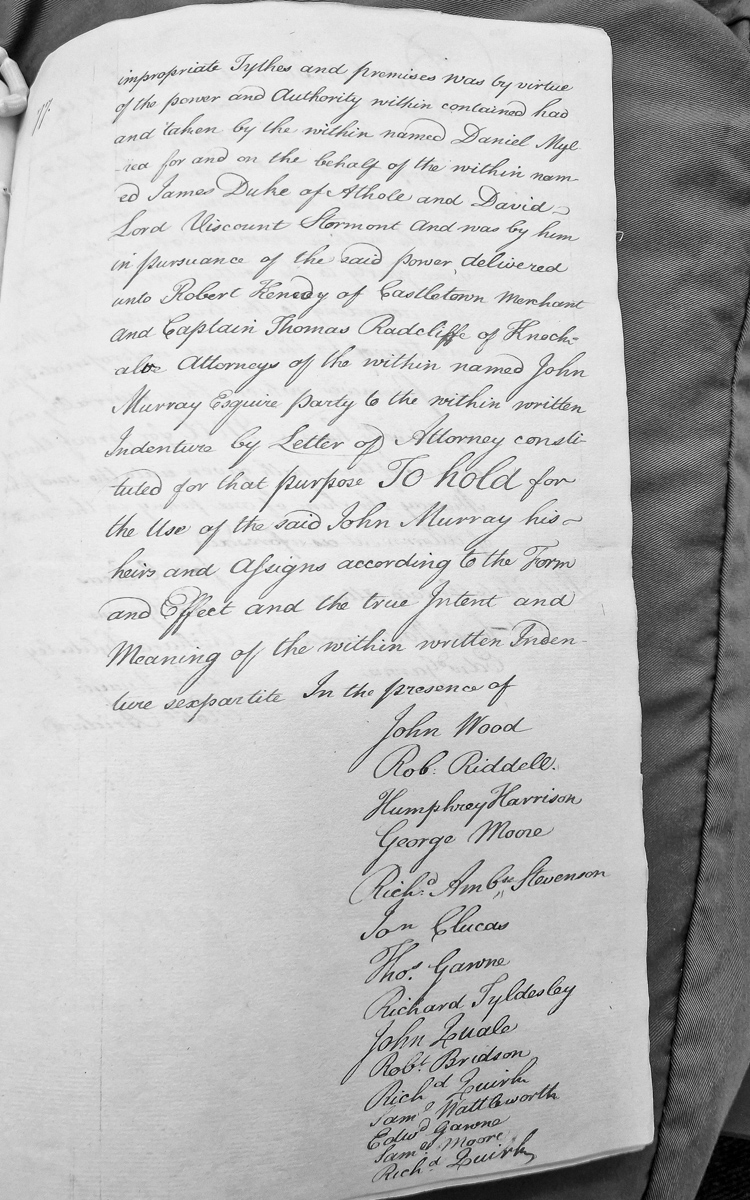 77.
impropriate Tythes and premises was by virtue
of the power and Authority within contained had
and taken by the within named Daniel Myl
rea for and on the behalf of the within nam
ed James Duke of Athole and David
Lord Viscount Stormont and was by him
in pursuance of the said power delivered
unto Robert Kenedy of Castletown Merchant
and Captain Thomas Radcliffe of Knock-
aloe Attorneys of the within named John
Murray Esquire party to the within written
Indenture by Letter of Attorney consti-
tuted for that purpose To hold for
the Use of the said John Murray his
heirs and Assigns according to the Form
and Effect and the true Intent and
Meaning of the within written Inden-
ture sexpartite In the presence of
John Wood
Rob: Riddell.
Humphrey Harrison
George Moore
Richd. Ambse Stevenson
Jon Clucas
Thos. Gawne
Richard Tyldesley
John Quale
Robt Bridson
Richd Quirk
Saml Wattleworth
Edwd Gawne
Saml Moore
Richd Quirk